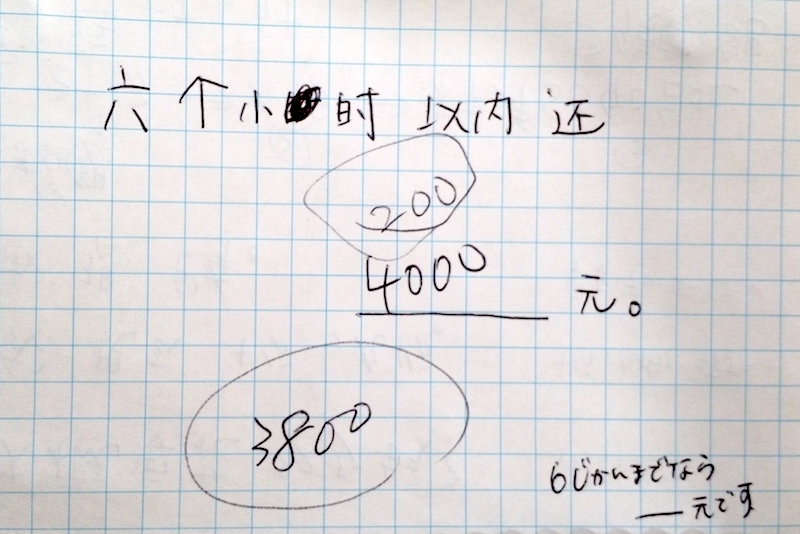 六个小时以内还
200
4000 元。
3800
6じかんまでなら
元です